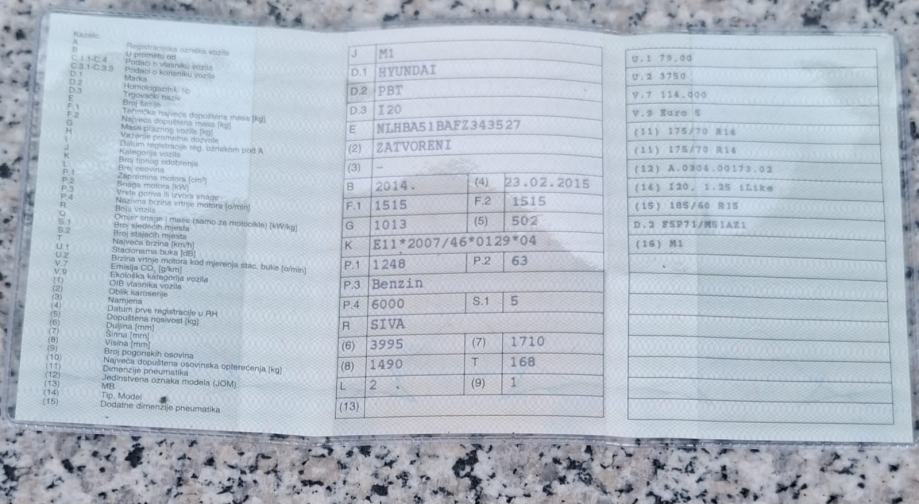 Kazalo:
A Registracijska oznaka vozila
B U prometu od
C.1.1-C.4 Podaci o vlasniku vozila
C.3.1-C.3.3 Podaci o korisniku vozila
D.1 Marka
D.2 Homologacijski tip
D.3 Trgovački naziv
E Broj šasije
F.1 Tehnički najveća dopuštena masa [kg]
F.2 Najveća dopuštena masa [kg]
G Masa praznog vozila [kg]
H Važenje prometne dozvole
I Datum registracije reg. oznakom pod A
J Kategorija vozila
K Broj tipnog odobrenja
L Broj osovina
P.1 Zapremina motora [cm³]
P.2 Snaga motora [kW]
P.3 Vrsta goriva ili izvora snage
P.4 Nazivna brzina vrtnje motora [o/min]
R Boja vozila
Q Omjer snage i mase (samo za motocikle) [kW/kg]
S.1 Broj sjedećih mjesta
S.2 Broj stajaćih mjesta
T Najveća brzina [km/h]
U.1 Stacionarna buka [dB]
U.2 Brzina vrtnje motora kod mjerenja stac. buke [o/min]
V.7 Emisija CO₂ [g/km]
V.9 Ekološka kategorija vozila
(1) OIB vlasnika vozila
(2) Oblik karoserije
(3) Namjena
(4) Datum prve registracije u RH
(5) Dopuštena nosivost [kg]
(6) Duljina [mm]
(7) Širina [mm]
(8) Visina [mm]
(9) Broj pogonskih osovina
(10) Najveća dopuštena osovinska opterećenja [kg]
(11) Dimenzije pneumatika
(12) Jedinstvena oznaka modela (JOM)
(13) MB
(14) Tip, Model
(15) Dodatne dimenzije pneumatika
J M1
D.1 HYUNDAI
D.2 PBT
D.3 I20
E NLHBA51BAFZ343527
(2) ZATVORENI
(3) -
B 2014. (4) 23.02.2015
F.1 1515 F.2 1515
G 1013 (5) 502
K E11*2007/46*0129*04
P.1 1248 P.2 63
P.3 Benzin
P.4 6000 S.1 5
R SIVA
(6) 3995 (7) 1710
(8) 1490 T 168
L 2 (9) 1
(13)
U.1 79.00
U.2 3750
V.7 114.000
V.9 Euro 5
(11) 175/70 R14
(11) 175/70 R14
(12) A.0304.00173.02
(14) I20, 1.25 iLike
(15) 185/60 R15
D.2 F5P71/M51AZ1
(16) M1